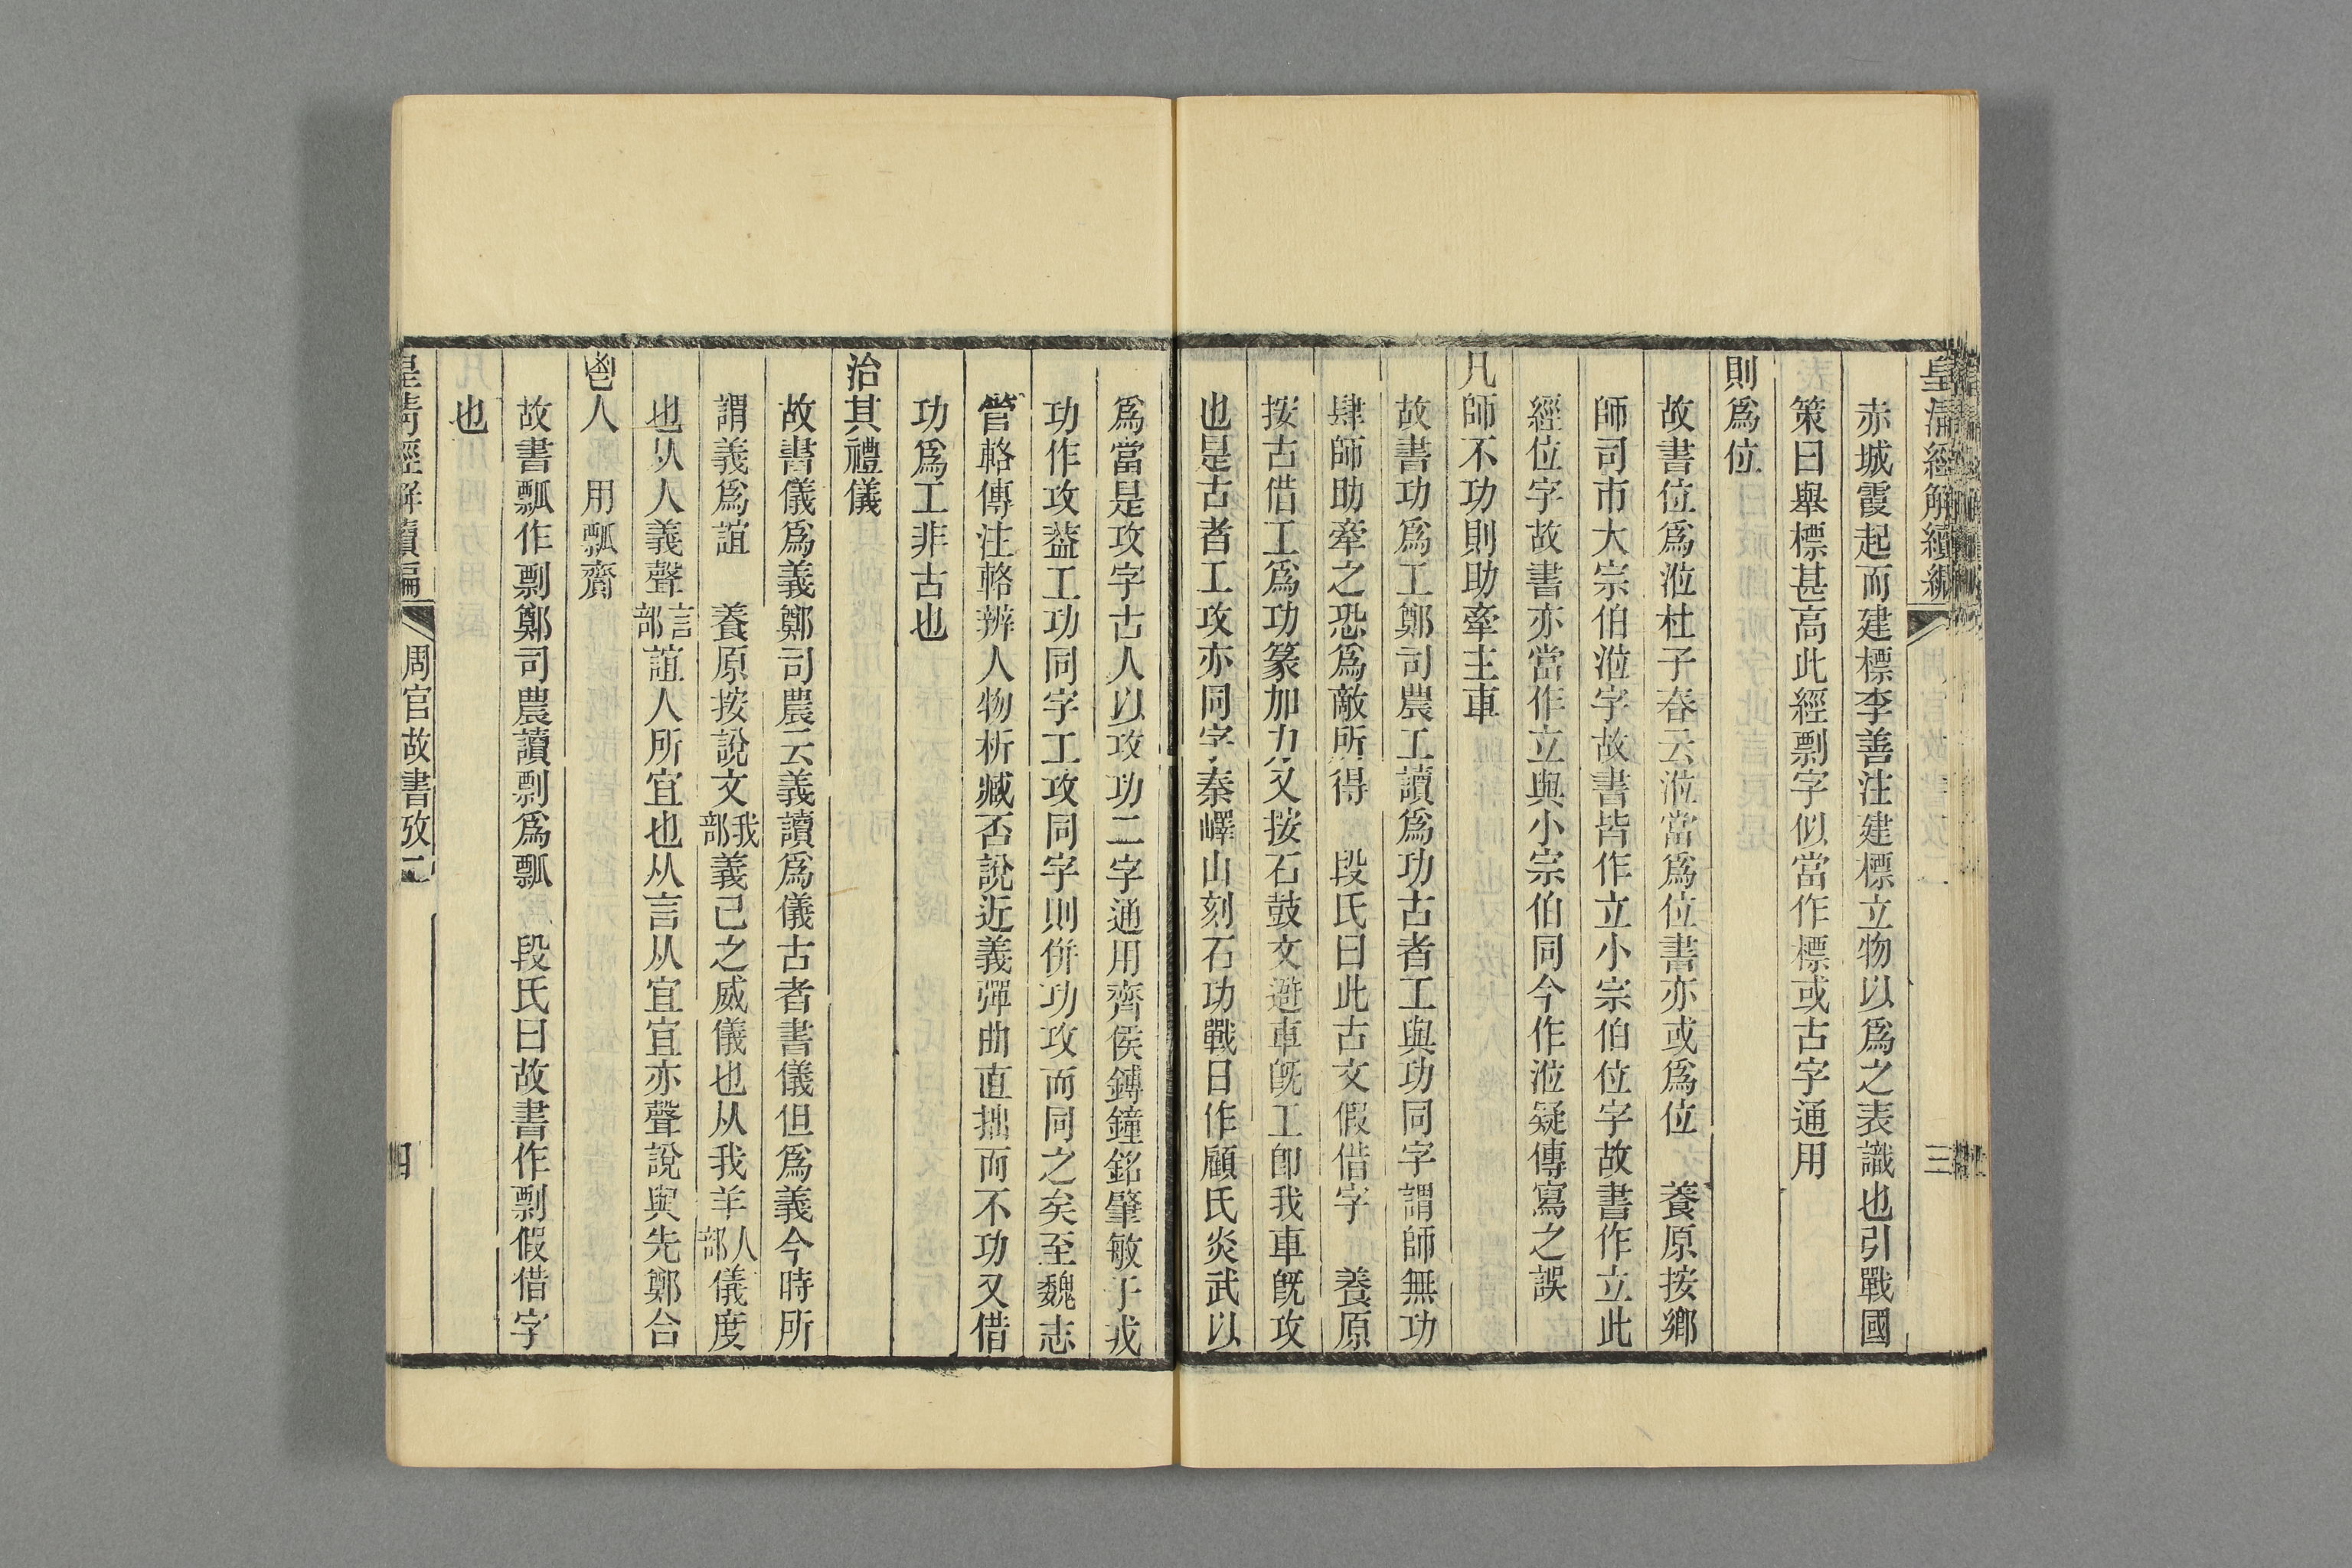 皇清經解續編
三
赤城霞起而建標李善注建標立物以爲之表識也引戰國
策曰舉標甚高此經剽字似當作標或古字通用
則爲位
故書位爲涖杜子春云涖當爲位書亦或爲位 養原按鄉
師司市大宗伯涖字故書皆作立小宗伯位字故書作立此
經位字故書亦當作立與小宗伯同今作涖疑傳寫之誤
凡師不功則助牽主車
故書功爲工鄭司農工讀爲功古者工與功同字謂師無功
肆師助牽之恐爲敵所得 段氏曰此古文假借字 養原
按古借工爲功篆加力又按石鼓文避車旣工卽我車旣攻
也是古者工攻亦同字秦嶧山刻石功戰日作顧氏炎武以
爲當是攻字古人以攻功二字通用齊侯鎛鐘銘肇敏于戎
功作攻葢工功同字工攻同字則併功攻而同之矣至魏志
管輅傳注輅辨人物析臧否說近義彈曲直拙而不功又借
功爲工非古也
治其禮儀
故書儀爲義鄭司農云義讀爲儀古者書儀但爲義今時所
謂義爲誼 養原按說文我部義己之威儀也从我羊人部儀度
也从人義聲言部誼人所宜也从言从宜宜亦聲說與先鄭合
鬯人 用瓢齎
故書瓢作剽鄭司農讀剽爲瓢 段氏曰故書作剽假借字
也
皇清經解續編
周官故書攷二
四